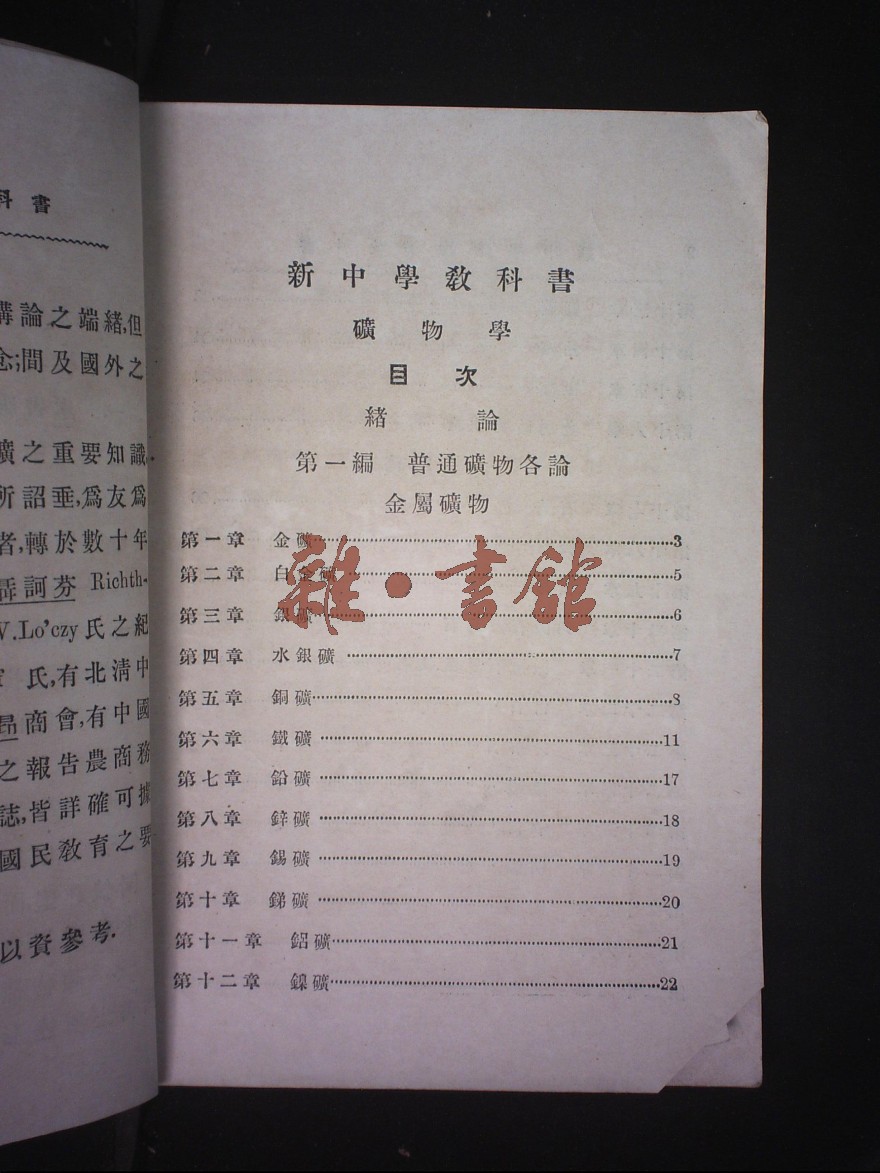 科書
論之端緒,但
間及國外之
之重要知識.
所詔垂,爲友爲
者,轉於數十年
訶芬 Richth-
V.Lo'czy氏之紀
氏,有北淸中
昻商會,有中國
之報告農商務
誌,皆詳確可據
國民敎育之要
以資參考.
新中學敎科書
礦物學
目次
緒論
第一編 普通礦物各論
金屬礦物
第一章 金礦 3
第二章 白金礦 5
第三章 銀礦 6
第四章 水銀礦 7
第五章 銅礦 8
第六章 鐵礦 11
第七章 鉛礦 17
第八章 鋅礦 18
第九章 錫礦 19
第十章 銻礦 20
第十一章 鋁礦 21
第十二章 鎳礦 22
雜·書館